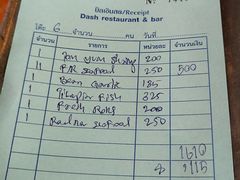 บิลเงินสด/Receipt
Dash restaurant & bar
โต๊ะ 6 จำนวน คน วันที่
จำนวน รายการ หน่วยละ จำนวนเงิน
1 Tom yum shrimp 200
11 F/R seafood 250 500
1 Bean Garlic 185
1 Fish 325
1 Fresh Roll 200
1 Radnar seafood 250
1610